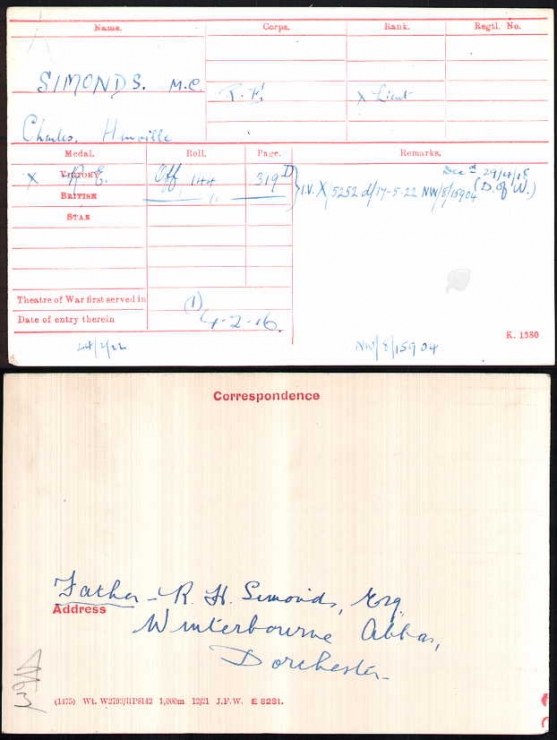 Name. Corps. Rank. Regtl. No.
SIMONDS. M.C. X Lieut
Charles,
Medal. Roll. Page. Remarks.
Decd 29/4/18
X VICTORY R.E. Off 144 319 D I.V. X 5252 d/17-5-22 NW/8/15904 (D. of W.)
BRITISH " "
STAR
Theatre of War first served in (1)
Date of entry therein 4-2-16.
K. 1380
NW/8/15904
Correspondence
Father - R. H. Simonds, Esq.
Address
Winterbourne Abbas,
Dorchester
(1475) Wt. W2792/HP8142 1,000m 12/21 J.F.W. E 3231.